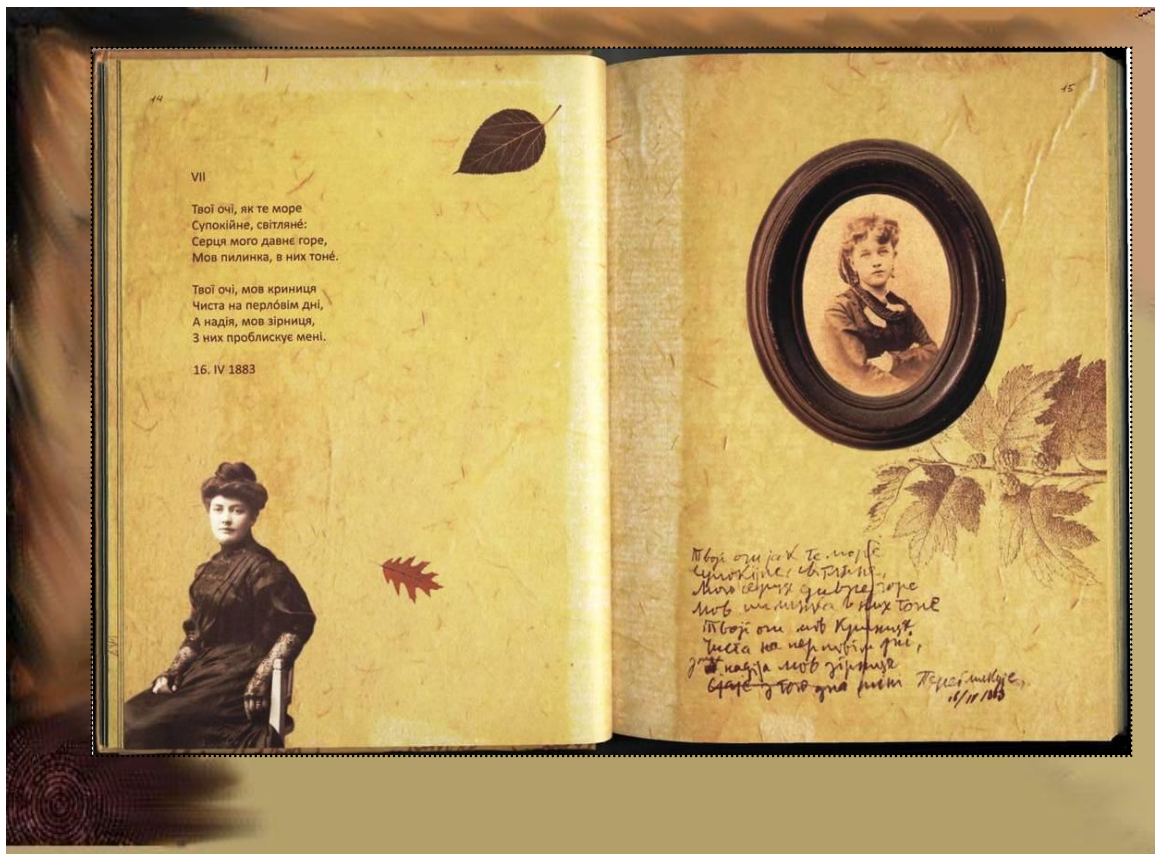 14
VII
Твої очі, як те море
Супокійне, світлянé:
Серця мого давнє горе,
Мов пилинка, в них тонé.
Твої очі, мов криниця
Чиста на перлóвім дні,
А надія, мов зірниця,
З них проблискує мені.
16. IV 1883
15
Твоji очи jак те море
Супокijне, світляне,
Мого серця давне горе
Мов пилинка в них тоне
Твоji очи мов Криниця
Чиста на перловім дні,
надіjа мов зірниця
з того дна мині
16/IV 1883